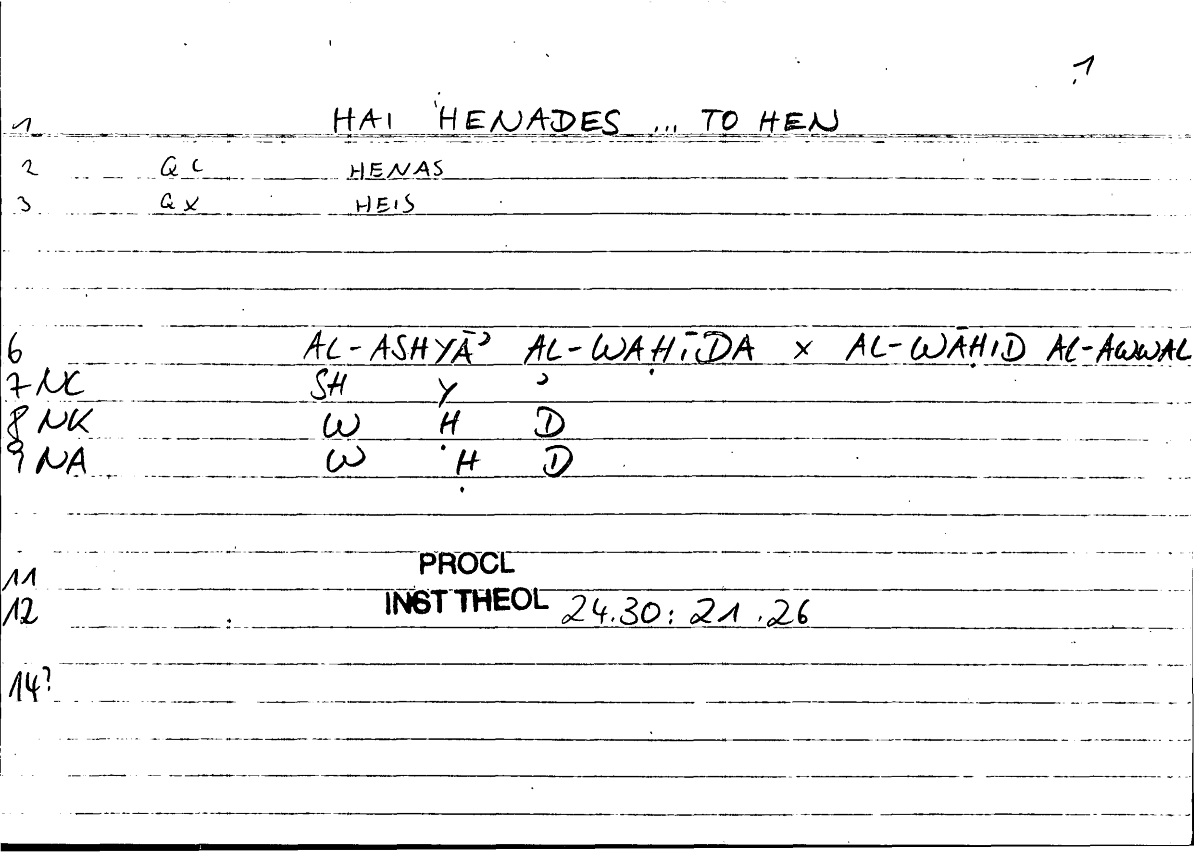 1
1 HAI HENADES ... TO HEN
2 QC HENAS
3 QX HEIS
6 AL-ASHYĀʾ AL-WAḤĪDA x AL-WĀḤID AL-AWWAL
7 NC SH Y ʾ
8 NK W Ḥ D
9 NA W Ḥ D
11 PROCL
12 INST THEOL 24.30: 21.26
14?